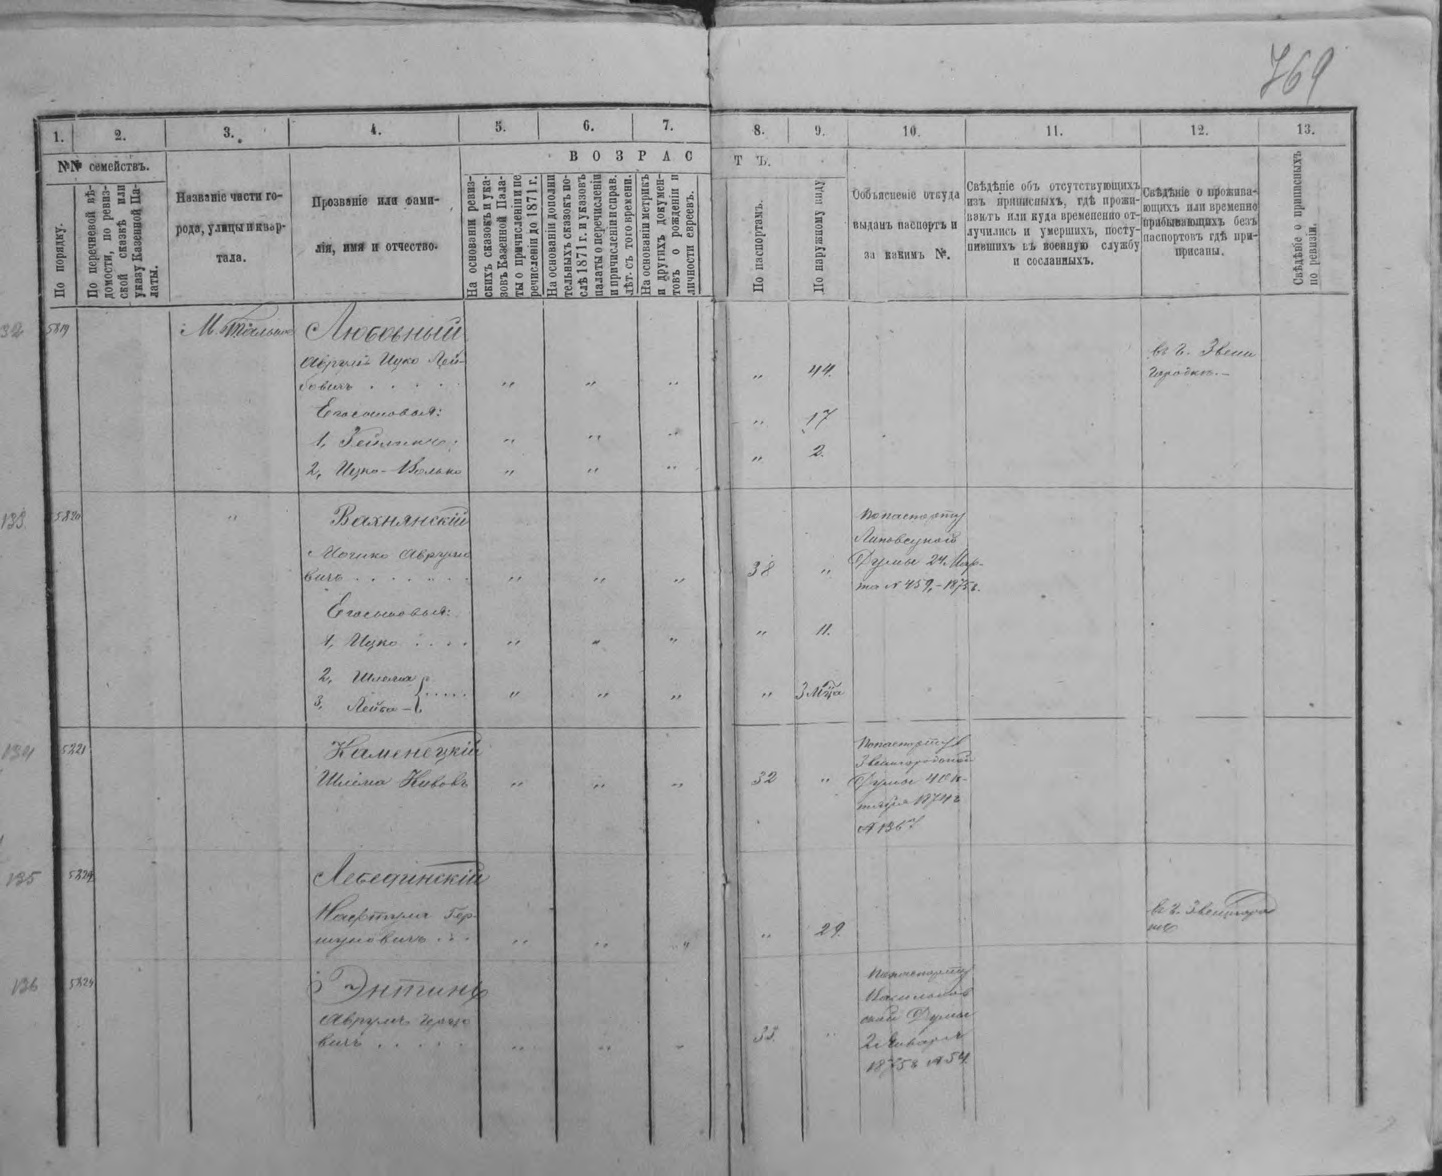 769
1.
2.
3.
4.
5.
6.
7.
8.
9.
10.
11.
12.
13.
№№ семействъ.
ВОЗРАС
ТЪ.
По порядку.
По перечневой вѣ-
домости, по ревиз-
ской сказкѣ или
указу Казенной Па-
латы.
Названіе части го-
рода, улицы и квар-
тала.
Прозваніе или фами-
лія, имя и отчество.
На основаніи ревиз-
скихъ сказокъ и ука-
зовъ Казенной Пала-
ты о причисленіи и пе
речисленіи до 1871 г.
На основаніи дополни
тельныхъ сказокъ по-
слѣ 1871 г. и указовъ
палаты о перечисленіи
и причисленіи и справ.
лѣт. съ того времени.
На основаніи метрикъ
и другихъ докумен-
товъ о рожденіи и
личности евреевъ.
По паспортамъ.
По наружному виду
Объясненіе откуда
выданъ паспортъ и
за какимъ №.
Свѣдѣніе объ отсутствующихъ
изъ приписныхъ, гдѣ прожи-
ваютъ или куда временно от-
лучились и умершихъ, посту-
пившихъ въ военную службу
и сосланныхъ.
Свѣдѣніе о прожива-
ющихъ или временно
прибывающихъ безъ
паспортовъ гдѣ при-
писаны.
Свѣдѣніе о приписныхъ
по ревизіи.
5819
Любовный
Аврумъ Ицко Лей-
бовичъ . . . . . „ „ „ „ 44.
въ г. Звени
городкѣ.
Его сыновья:
1, „ „ „ „ 17
2, Ицко-Волько „ „ „ „ 2.
133
5820 „
Вахнянскій
Мошко Аврумо
вичъ . . . . . . . „ „ „ 38 „
По паспорту
Липовецкой
Думы 24 Мар-
та № 459,-1875 г.
Его сыновья:
1, Ицко . . . . „ „ „ „ 11.
2, Шлема
3, Лейба „ „ „ „ 3 М-ца
134
5821
Каменецкій
Шлема Кивовъ „ „ „ 32 „
По паспорту
Звенигородской
Думы 4 Ок-
тября 1874 г.
135
Лебединскій
Нафтула Гер-
шуновичъ . . . „ „ „ „ 29.
въ г. Звенигород
кѣ
136
Энтинъ
Аврумъ
вичъ . . . . . „ „ „ 33. „
По паспорту
Васильков
ской Думы
2 Января
1875 г. № 54